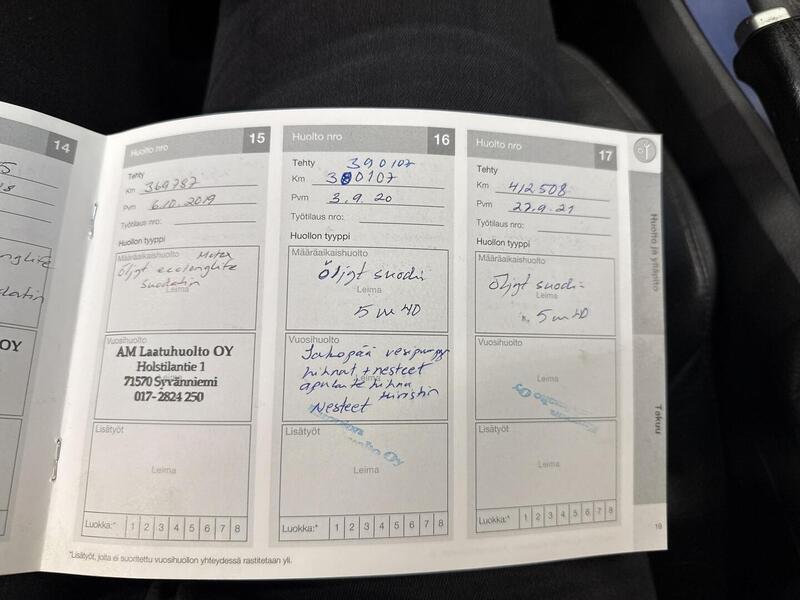 14
Huolto nro 15
Tehty
Km 369787
Pvm 6.10.2019
Työtilaus nro:
Huollon tyyppi
Määräaikaishuolto
Motex
Öljyt ecolonglite
Leima
Suodatin
Vuosihuolto
AM Laatuhuolto OY
Holstilantie 1
71570 Syvänniemi
017-2824 250
Lisätyöt
Leima
Luokka:* 1 2 3 4 5 6 7 8
*Lisätyöt, joita ei suoritettu vuosihuollon yhteydessä rastitetaan yli.
Huolto nro 16
Tehty 390107
Km 390107
Pvm 3.9.20
Työtilaus nro:
Huollon tyyppi
Määräaikaishuolto
Öljyt suodin
Leima
5w40
Vuosihuolto
Jakopää vesipumppu
hihnat + nesteet
Leima
apulaite hihna
kiristin
Nesteet
Oy
Lisätyöt
Leima
Luokka:* 1 2 3 4 5 6 7 8
Huolto nro 17
Tehty
Km 412508
Pvm 27.9.21
Työtilaus nro:
Huollon tyyppi
Määräaikaishuolto
Öljyt suodin
Leima
5w40
Vuosihuolto
Leima
Oy
Lisätyöt
Leima
Luokka:* 1 2 3 4 5 6 7 8
Huolto ja ylläpito
Takuu
19